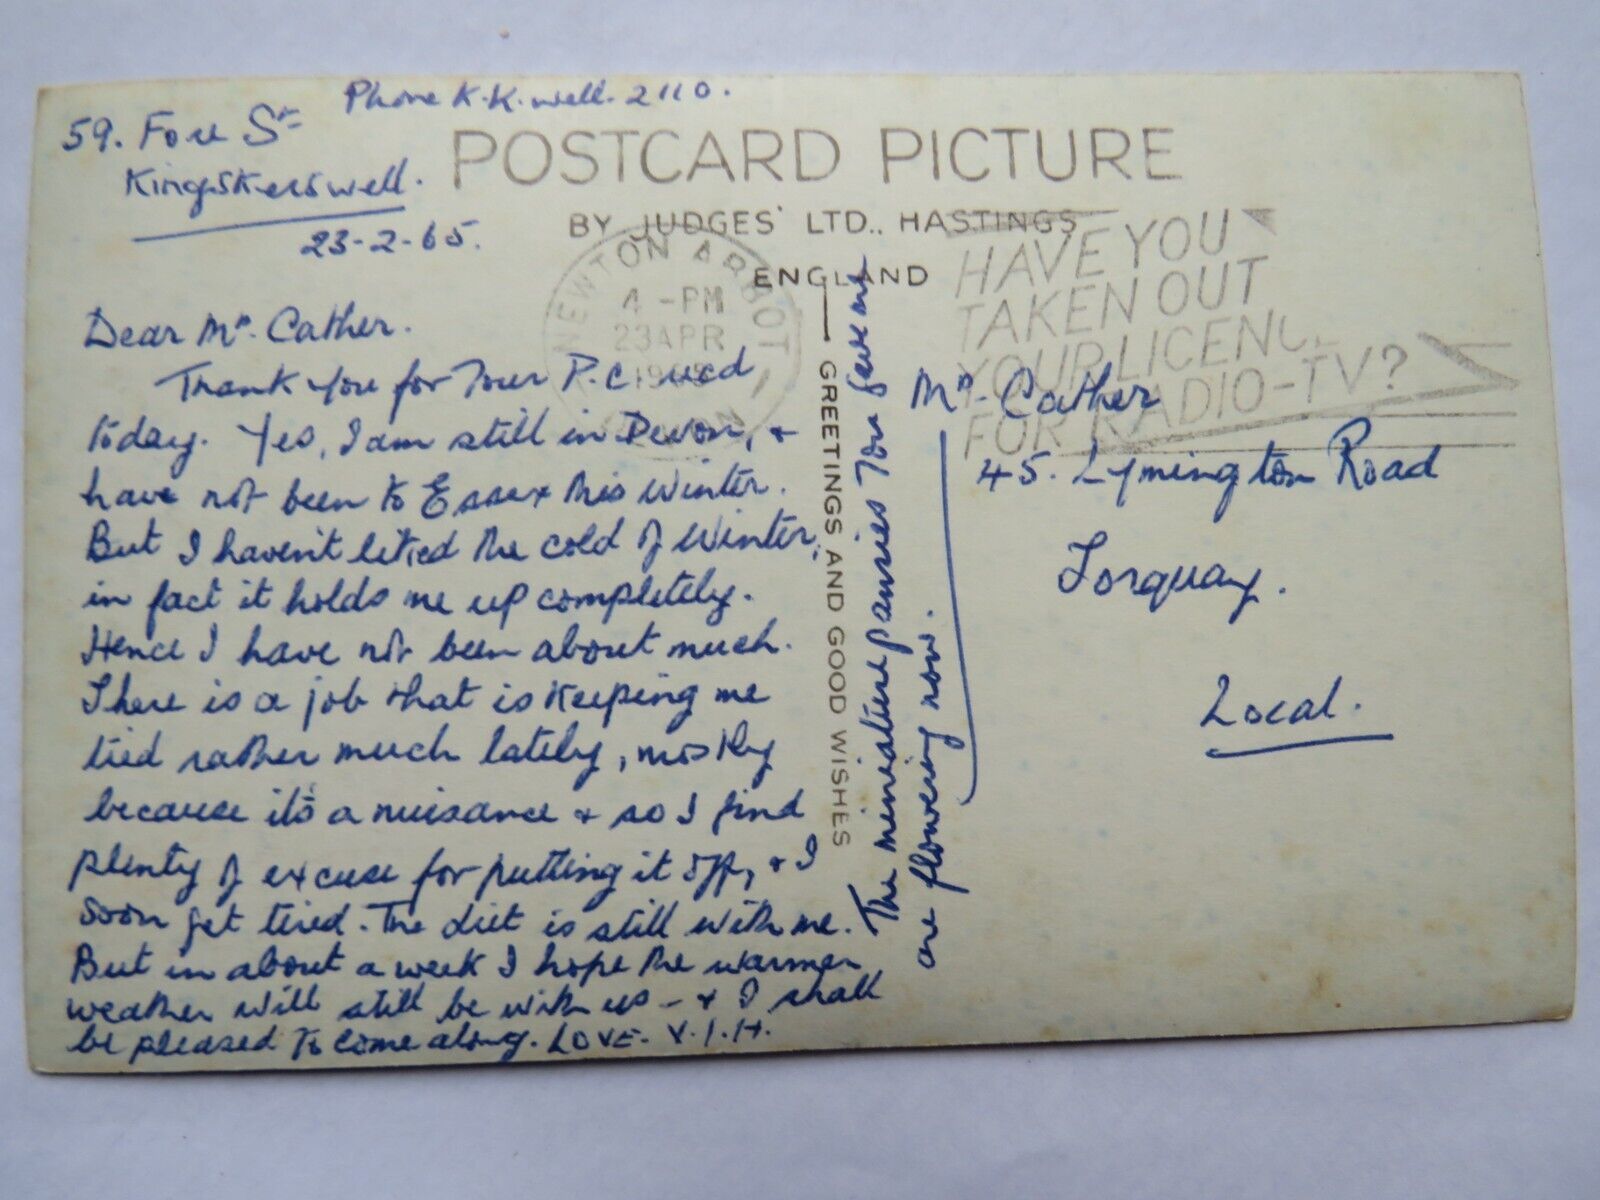 Phone K.K.well. 2110.
59. Fore St
Kingskerswell.
23-2-65.
POSTCARD PICTURE
BY JUDGES' LTD., HASTINGS
ENGLAND
NEWTON ABBOT
4 - PM
23 APR
1965
DEVON
HAVE YOU
TAKEN OUT
YOUR LICENCE
FOR RADIO-TV?
Dear Mrs. Cather.
Thank you for your P.c recd
today. Yes, I am still in Devon, &
have not been to Essex this Winter.
But I haven't liked the cold of Winter,
in fact it holds me up completely.
Hence I have not been about much.
There is a job that is keeping me
tied rather much lately, mostly
because it's a nuisance & so I find
plenty of excuse for putting it off, & I
soon get tired. The diet is still with me.
But in about a week I hope the warmer
weather will still be with us - & I shall
be pleased to come along. LOVE. V.I.H.
GREETINGS AND GOOD WISHES
The mineature pansies you gave me
are flowering now.
Mrs. Cather
45. Lymington Road
Torquay.
Local.